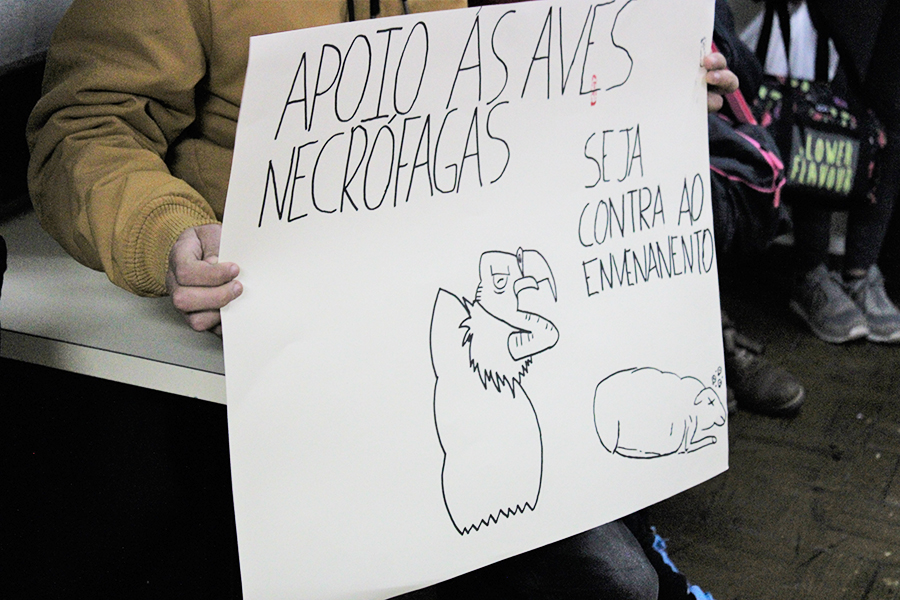 APOIO ÁS AVES
NECRÓFAGAS
SEJA
CONTRA AO
ENVENANENTO
LOWER